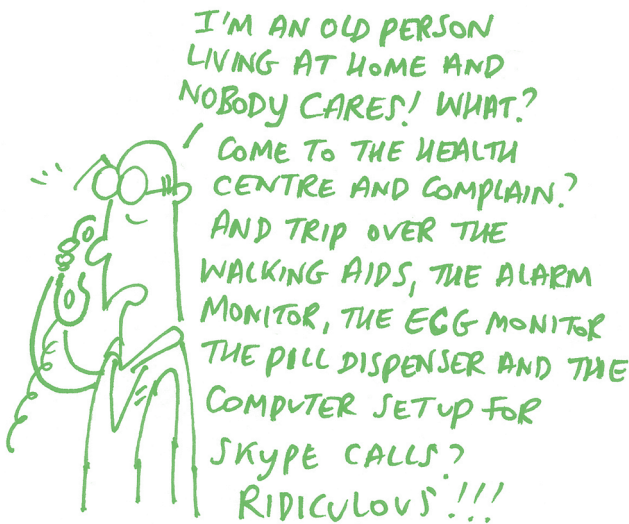 I'M AN OLD PERSON
LIVING AT HOME AND
NOBODY CARES! WHAT?
COME TO THE HEALTH
CENTRE AND COMPLAIN?
AND TRIP OVER THE
WALKING AIDS, THE ALARM
MONITOR, THE ECG MONITOR
THE PILL DISPENSER AND THE
COMPUTER SETUP FOR
SKYPE CALLS?
RIDICULOUS!!!